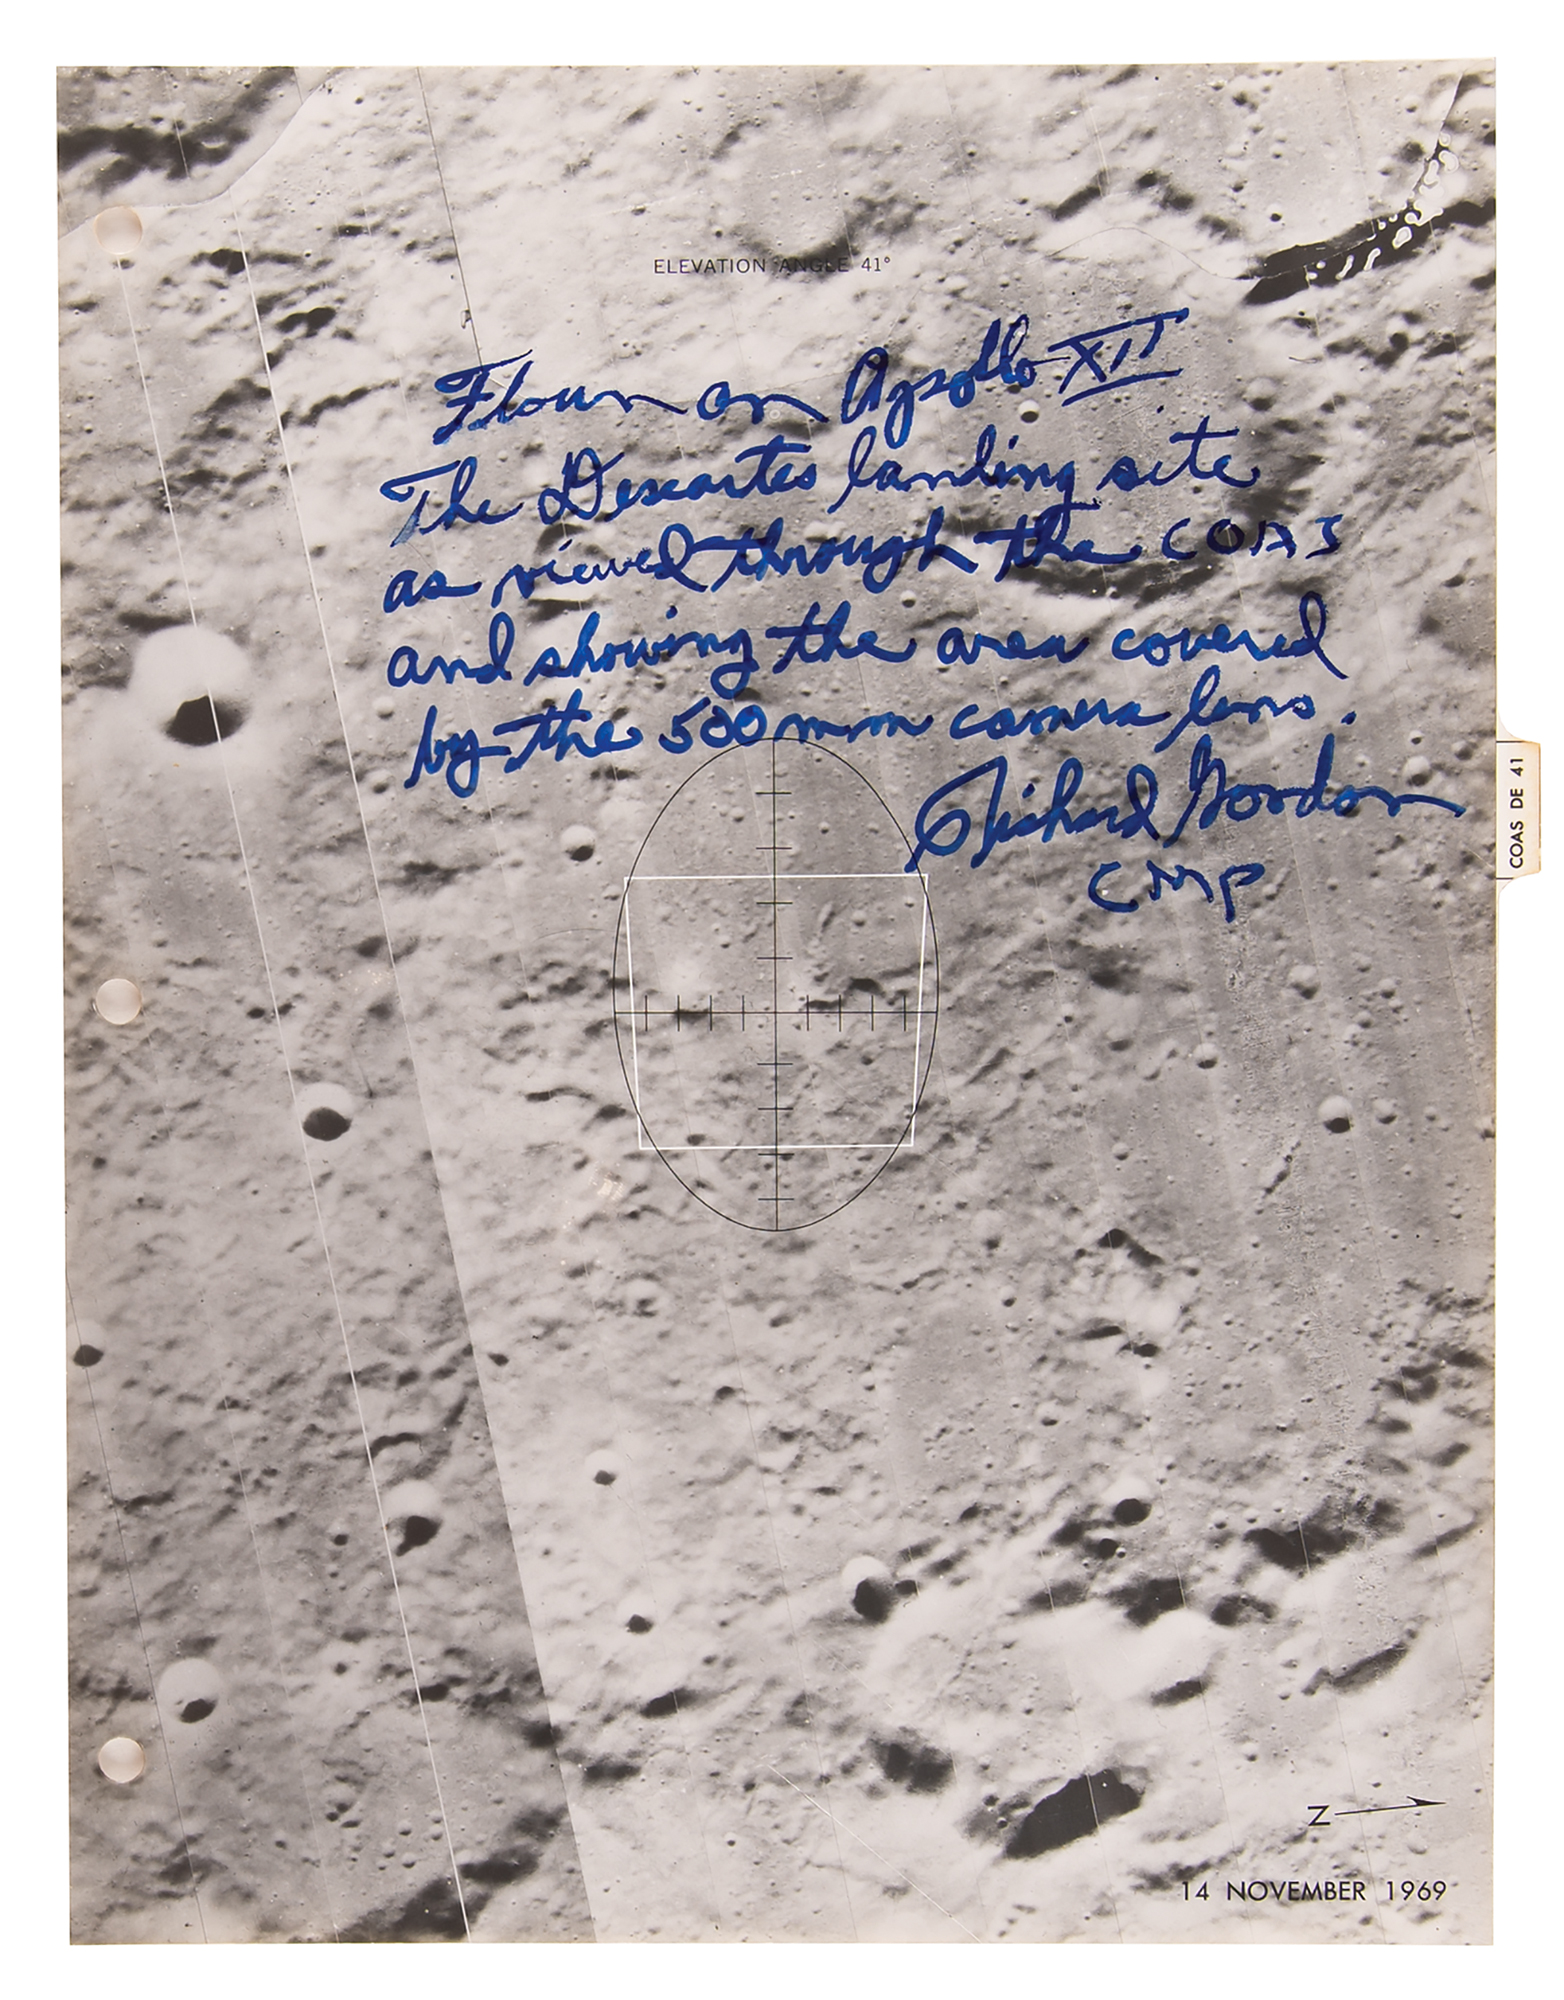 ELEVATION ANGLE 41°
Flown on Apollo XII
The Descartes landing site
as viewed through the COAS
and showing the area covered
by the 500mm camera lens.
Richard Gordon
CMP
COAS DE 41
N
14 NOVEMBER 1969